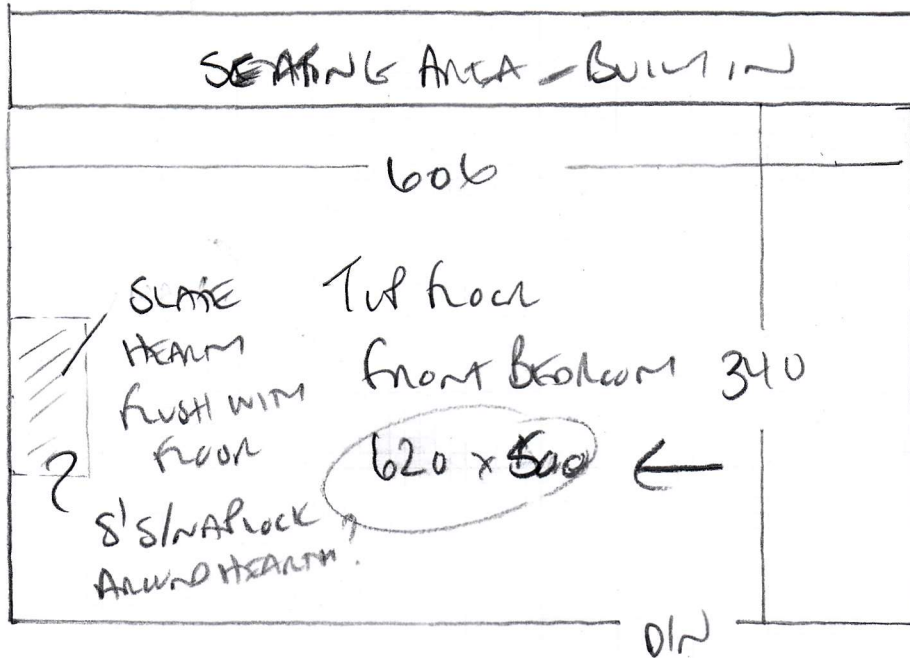 SEATING AREA - BUILT IN
606
SLATE
HEARTH
FLUSH WITH
FLOOR
TOP FLOOR
FRONT BEDROOM
340
620 x 500
←
?
S'S/NAPLOCK
AROUND HEARTH?
D/N